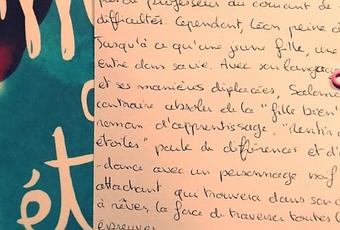 difficultés. Cependant, Léon peine à
jusqu'à ce qu'une jeune fille, une
entre dans sa vie. Avec son langage
et ses manières déplacées, Salom
contraire absolu de la "fille bien"
roman d'apprentissage, "dentis
étoiles" parle de différences et d'
-dance avec un personnage naïf
attachant qui trouvera dans son
à rêver, la force de traverser toutes
épreuves
ét